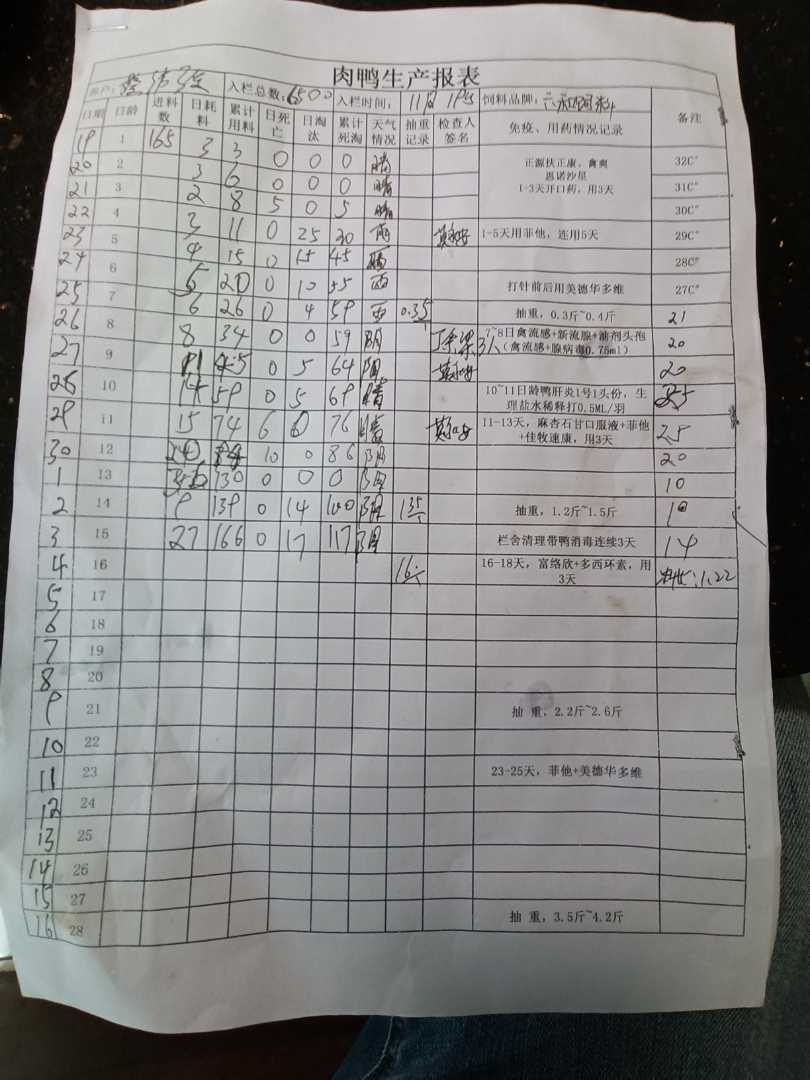 肉鸭生产报表
入栏总数：6500 入栏时间：11月 19号 饲料品牌：六和饲料
日期 日龄 进料数 日耗料 累计用料 日死亡 日淘汰 累计死淘 天气情况 抽重记录 检查人签名 免疫、用药情况记录 备注
19 1 165 3 3 0 0 0 晴 正源扶正康，禽爽 恩诺沙星 1-3天开口药，用3天 32C°
20 2 3 6 0 0 0 晴 31C°
21 3 2 8 5 0 5 晴 30C°
22 4 3 11 0 25 30 雨 1-5天用菲他，连用5天 29C°
23 5 4 15 0 15 45 28C°
24 6 5 20 0 10 55 雨 打针前后用美德华多维 27C°
25 7 6 26 0 4 59 雨 0.35 抽重，0.3斤~0.4斤 21
26 8 8 34 0 0 59 阴 7~8日禽流感+新流腺+油剂头孢（禽流感+腺病毒0.75ml） 20
27 9 11 45 0 5 64 阴 20
28 10 14 59 0 5 69 晴 10~11日龄鸭肝炎1号1头份，生理盐水稀释打0.5ML/羽
29 11 15 74 6 0 76 晴 11-13天，麻杏石甘口服液+菲他+佳牧速康，用3天 25
30 12 10 0 86 阴 20
1 13 130 0 0 0 阴 10
2 14 9 139 0 14 100 阴 135 抽重，1.2斤~1.5斤 10
3 15 27 166 0 17 117 阴 栏舍清理带鸭消毒连续3天 14
4 16 16 16-18天，富络欣+多西环素，用3天 1.22
5 17
6 18
7 19
8 20
9 21 抽 重，2.2斤~2.6斤
10 22
11 23 23-25天，菲他+美德华多维
12 24
13 25
14 26
15 27
16 28 抽 重，3.5斤~4.2斤